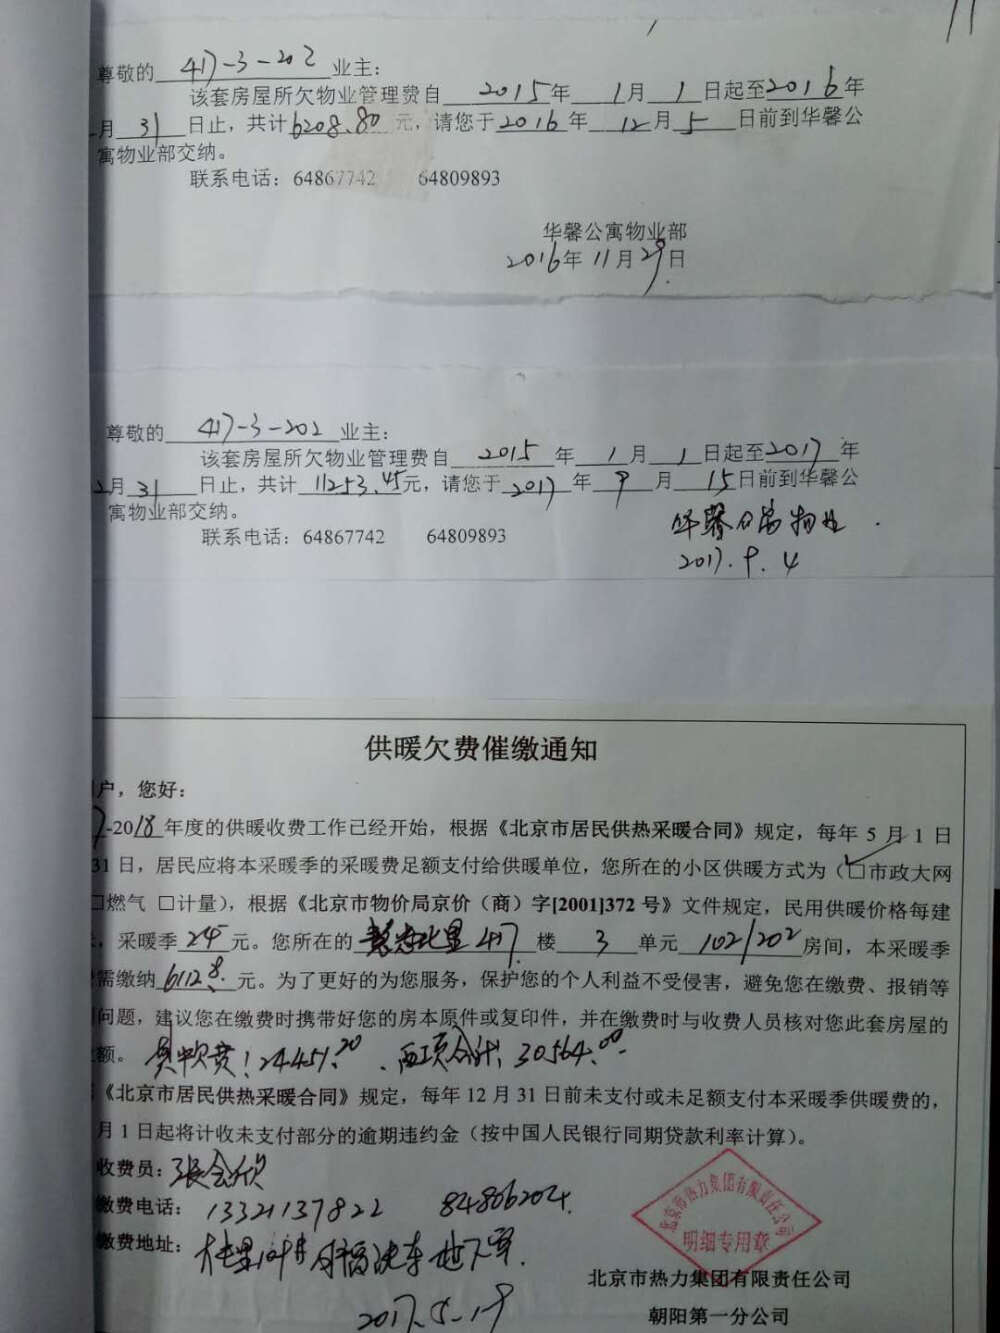 尊敬的 417-3-202 业主：
该套房屋所欠物业管理费自 2015 年 1 月 1 日起至 2016 年
月 31 日止，共计 6208.80 元，请您于 2016 年 12 月 5 日前到华馨公
寓物业部交纳。
联系电话：64867742 64809893
华馨公寓物业部
2016年 11月 29日
尊敬的 417-3-202 业主：
该套房屋所欠物业管理费自 2015 年 1 月 1 日起至 2017 年
2月 31 日止，共计 11253.45元，请您于 2017 年 9 月 15 日前到华馨公
寓物业部交纳。
联系电话：64867742 64809893
华馨公寓物业.
2017.9.4
供暖欠费催缴通知
户，您好：
-2018 年度的供暖收费工作已经开始，根据《北京市居民供热采暖合同》规定，每年 5 月 1 日
31 日，居民应将本采暖季的采暖费足额支付给供暖单位，您所在的小区供暖方式为（☑市政大网
□燃气 □计量），根据《北京市物价局京价（商）字[2001]372 号》文件规定，民用供暖价格每建
采暖季 24 元。您所在的 北里 417 楼 3 单元 102/202 房间，本采暖季
需缴纳 6112.8 元。为了更好的为您服务，保护您的个人利益不受侵害，避免您在缴费、报销等
问题，建议您在缴费时携带好您的房本原件或复印件，并在缴费时与收费人员核对您此套房屋的
额。 24451.20 、两项合计：30564.00
《北京市居民供热采暖合同》规定，每年 12 月 31 日前未支付或未足额支付本采暖季供暖费的，
月 1 日起将计收未支付部分的逾期违约金（按中国人民银行同期贷款利率计算）。
收费员：张会欣
缴费电话： 13321137822 84806204
缴费地址： 洗车地下室.
北京市热力集团有限责任公司
明细专用章
北京市热力集团有限责任公司
朝阳第一分公司
2017.5.19